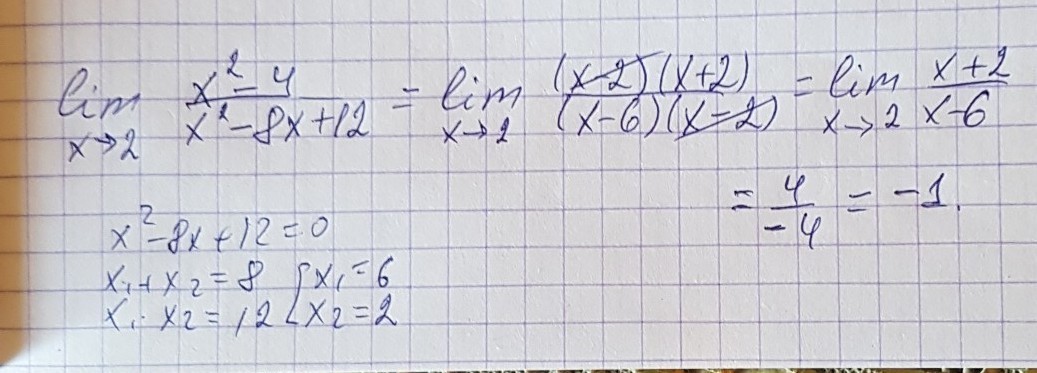 lim x→2 (x²-4)/(x²-8x+12) = lim x→2 (x-2)(x+2)/(x-6)(x-2) = lim x→2 (x+2)/(x-6)
= 4/-4 = -1.
x²-8x+12=0
x₁+x₂=8 { x₁=6
x₁·x₂=12 { x₂=2